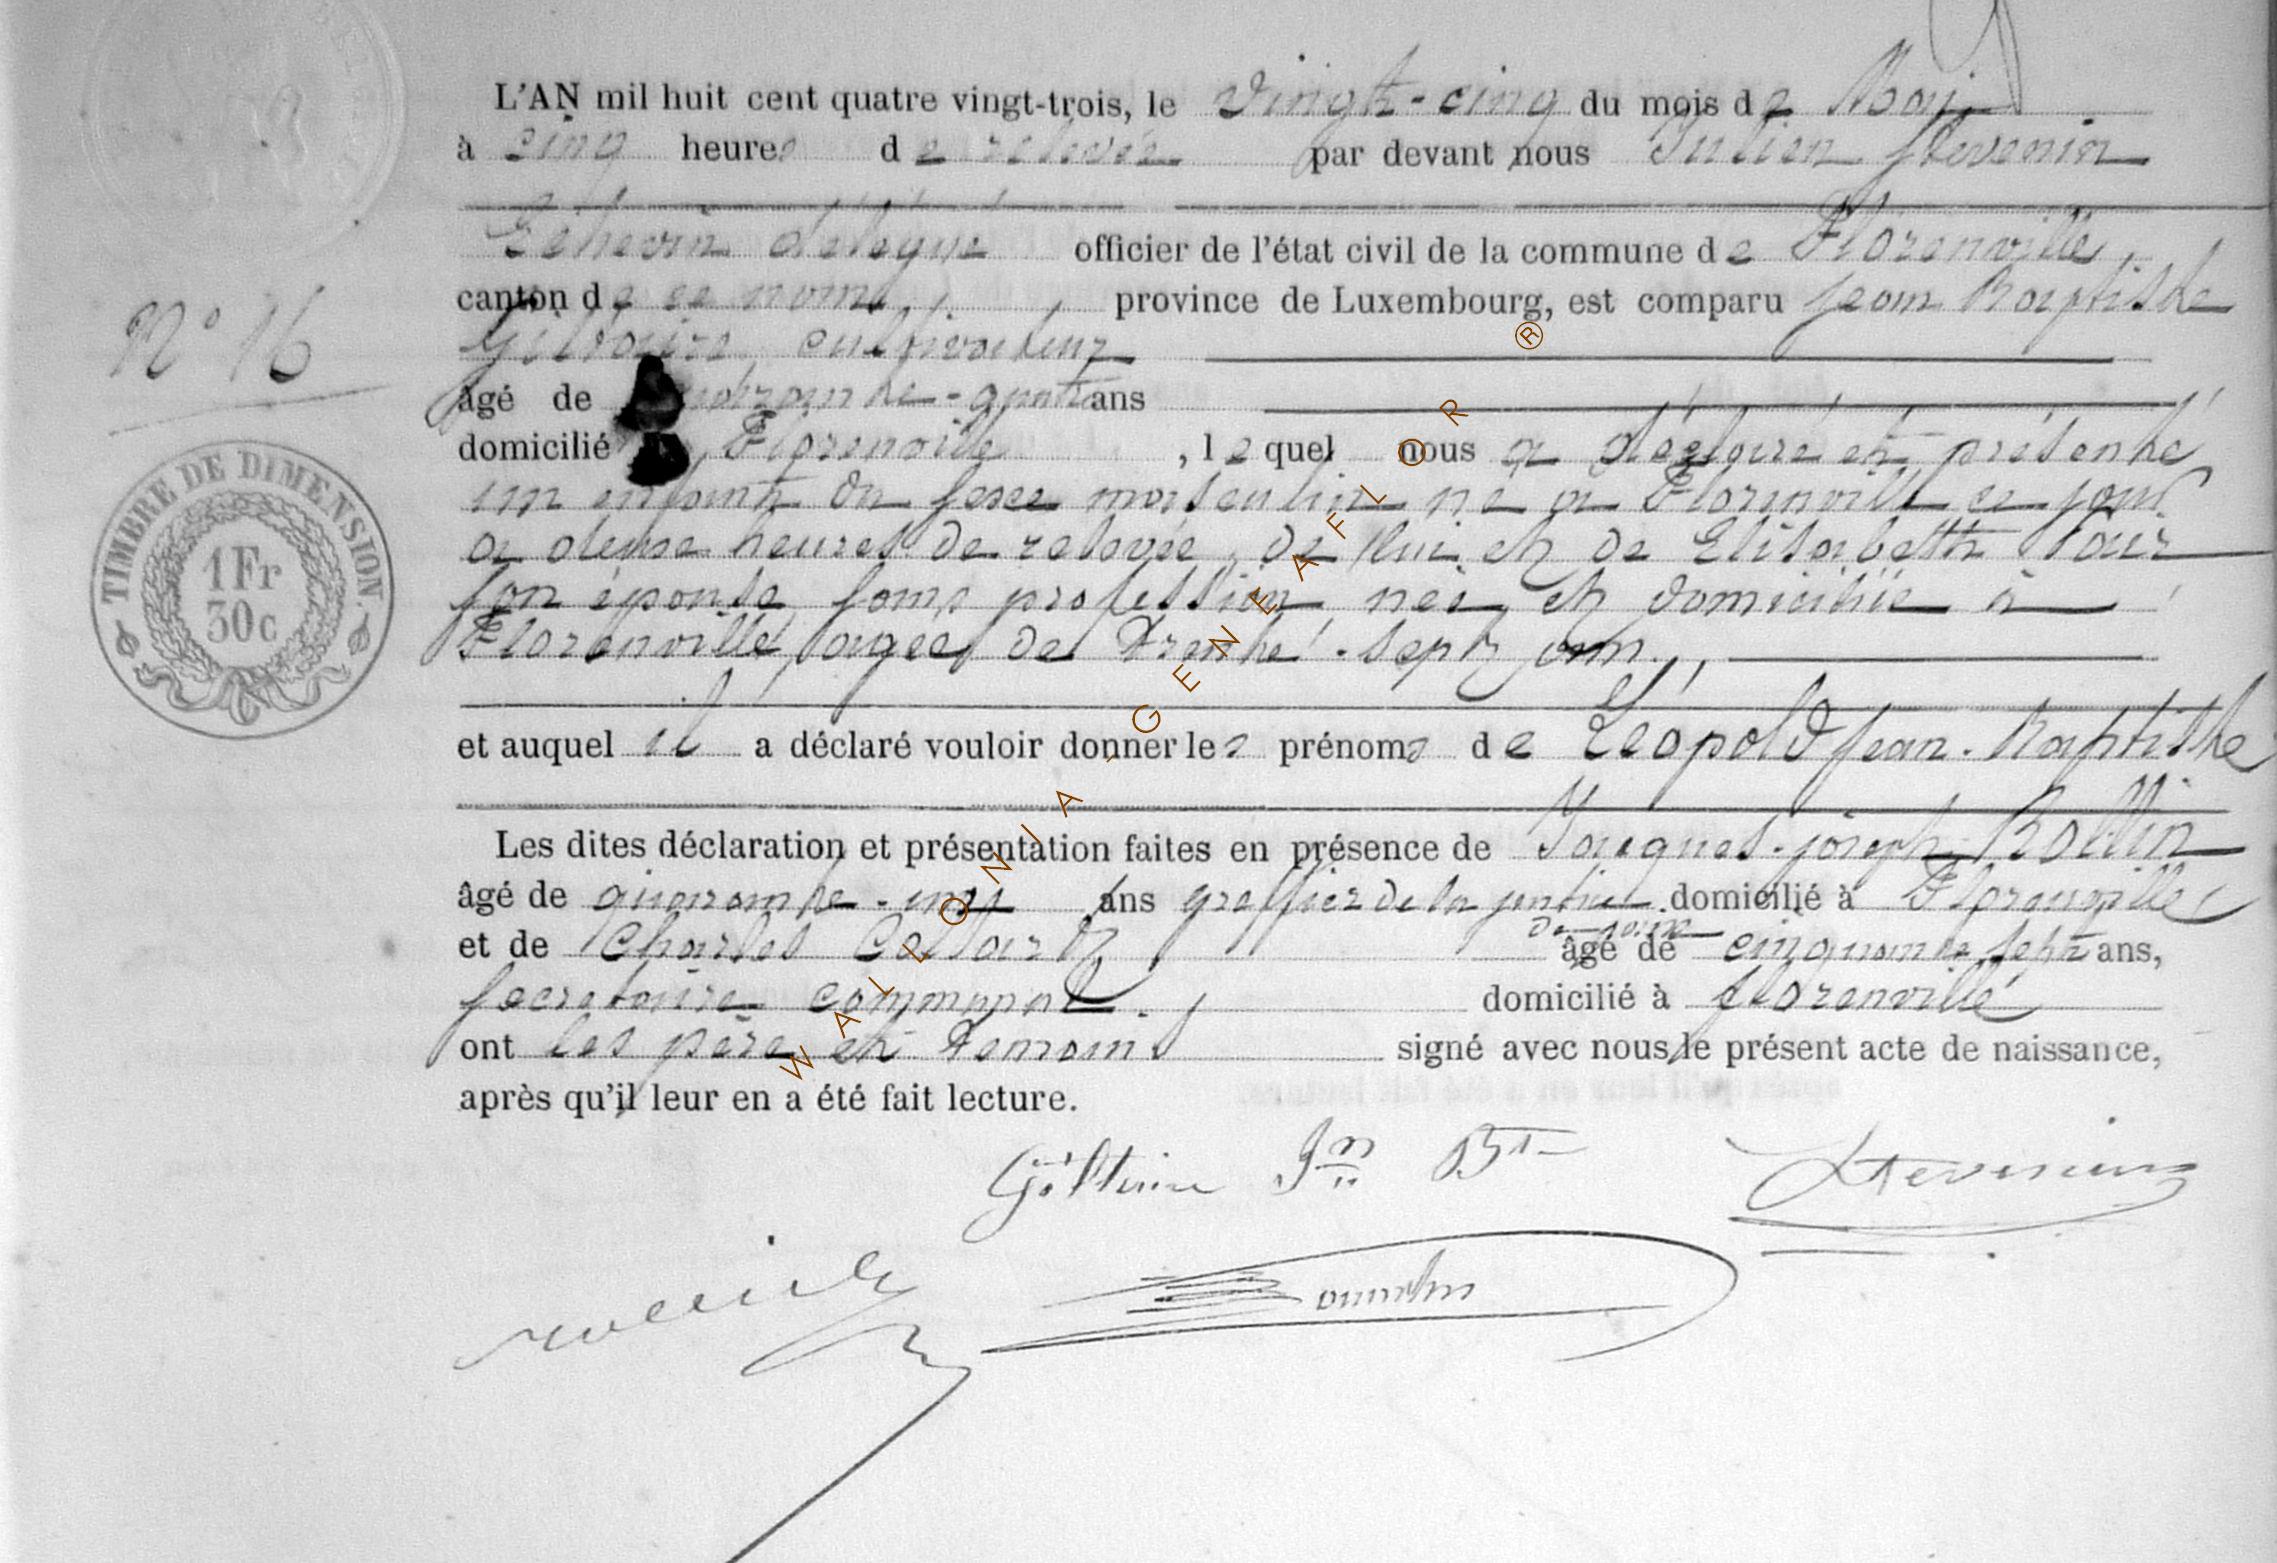 L'AN mil huit cent quatre vingt-trois, le vingt-cinq du mois de Mai
à cinq heures de relevée par devant nous Julien Stevenin
Echevin délégué officier de l'état civil de la commune de Florenville,
canton de ce nom, province de Luxembourg, est comparu Jean Baptiste
Giltaire, cultivateur
N° 16
âgé de quatre ans
domicilié à Florenville, lequel nous a déclaré et présenté
un enfant du sexe masculin né à Florenville ce jour
a deux heures de relevée, de lui et de Elisabeth
son épouse, sans profession née et domiciliée à
Florenville, agée de trente-sept ans,
TIMBRE DE DIMENSION.
1 Fr
30c
et auquel il a déclaré vouloir donner les prénoms de Léopold Jean-Baptiste
Les dites déclaration et présentation faites en présence de Jacques-joseph Rollin
âgé de quarante-un ans greffier de la justice domicilié à Florenville,
de paix
et de Charles âgé de cinquante sept ans,
secretaire communal. domicilié à florenville
ont les père et temoins signé avec nous le présent acte de naissance,
après qu'il leur en a été fait lecture.
Giltaire Jn Bte Stevenin
WALLONIA-GENEAFLOR®